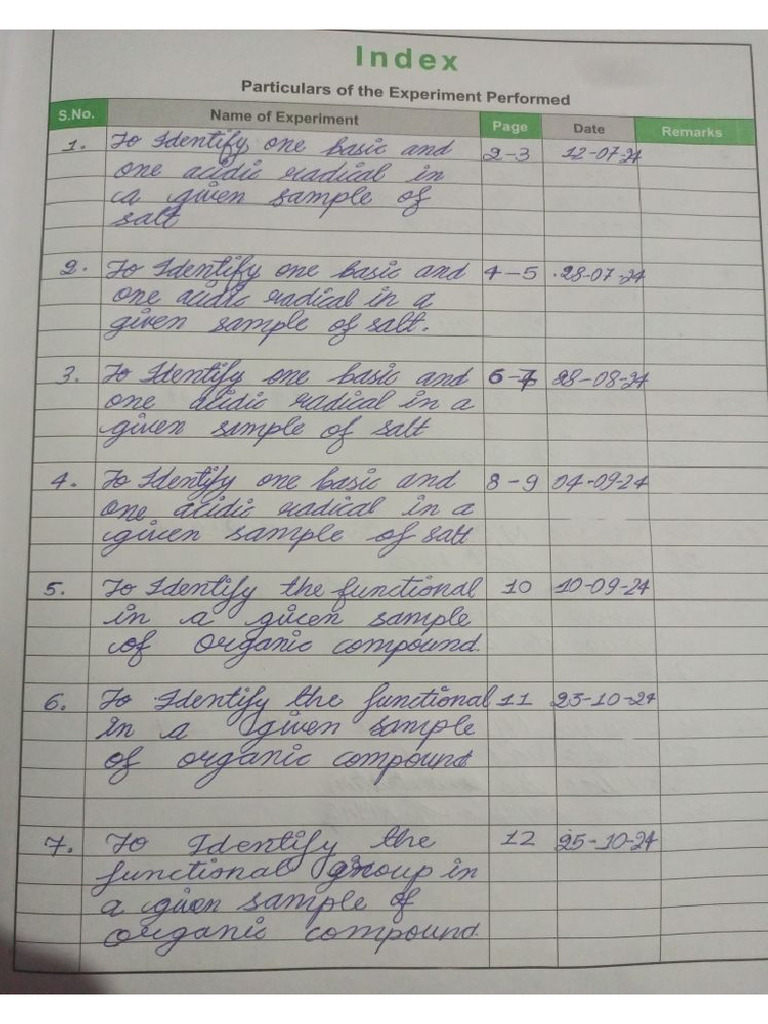 Index
Particulars of the Experiment Performed
S.No. Name of Experiment Page Date Remarks
1. To Identify one basic and 2-3 12-07-24
one acidic radical in
a given sample of
salt
2. To Identify one basic and 4-5 28-07-24
one acidic radical in a
given sample of salt.
3. To Identify one basic and 6-7 28-08-24
one acidic radical in a
given sample of salt
4. To Identify one basic and 8-9 04-09-24
one acidic radical in a
given sample of salt
5. To Identify the functional 10 10-09-24
in a given sample
of organic compound.
6. To Identify the functional 11 23-10-24
in a given sample
of organic compound
7. To Identify the 12 25-10-24
functional group in
a given sample of
organic compound.